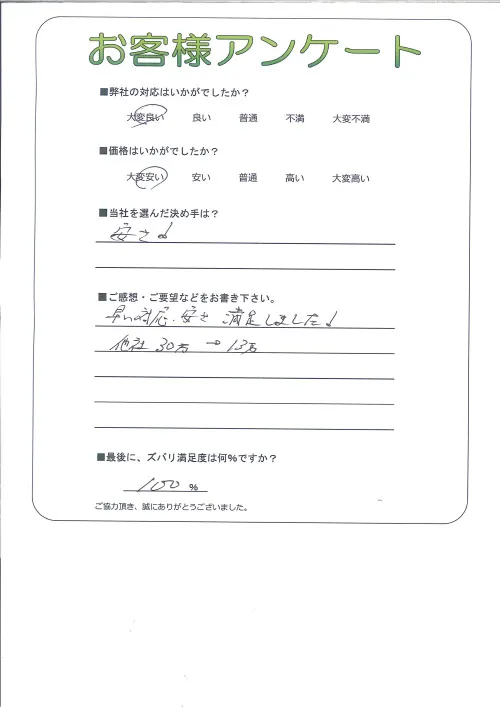 お客様アンケート
■弊社の対応はいかがでしたか？
大変良い 良い 普通 不満 大変不満
■価格はいかがでしたか？
大変安い 安い 普通 高い 大変高い
■当社を選んだ決め手は？
安さ!
■ご感想・ご要望などをお書き下さい。
早い対応.安さ 満足しました!
他社30万→13万
■最後に、ズバリ満足度は何%ですか？
100 %
ご協力頂き、誠にありがとうございました。